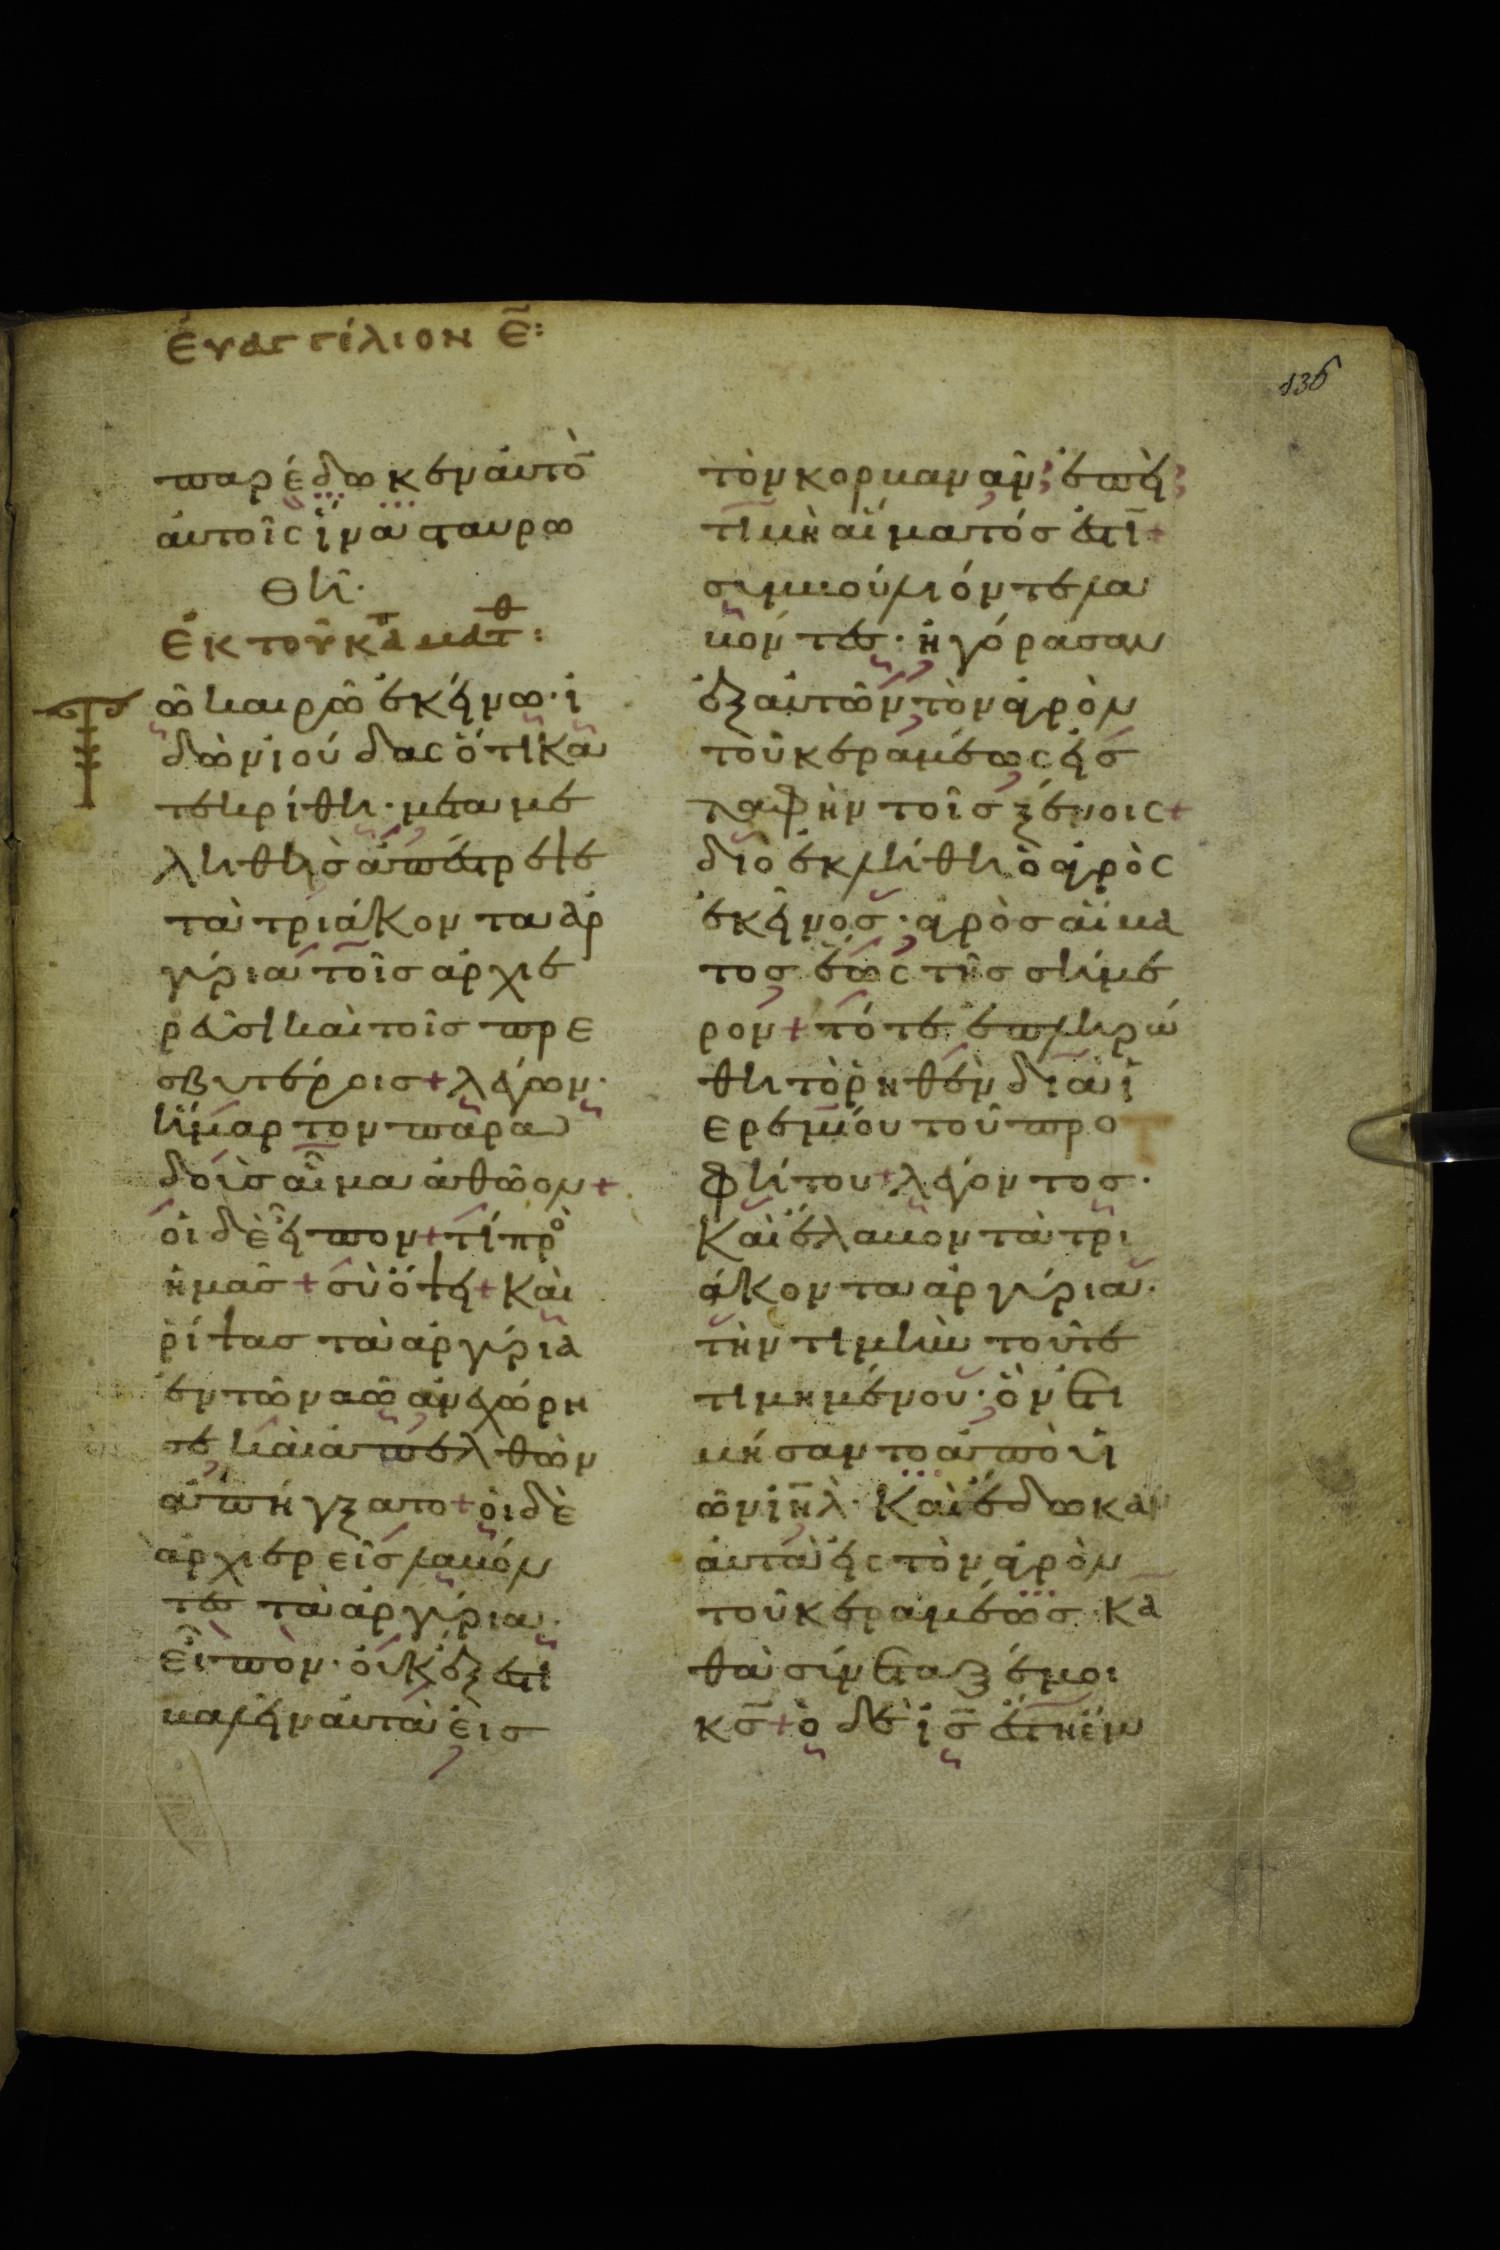 ἐυαγγέλιον ε̃:
136
παρέδωκεν αὐτὸ
αὐτοῖς ἵνα σταυρω
θῆ·
ἐκ τοῦ κατὰ ματθ:
Τῶ καιρῶ ἐκείνω· ἰ
δὼν ἰούδας ὅτι κα
τεκρίθη· μεταμε
ληθεὶς ἀπέστρεψε
τὰ τριάκοντα ἀρ
γύρια τοῖς ἀρχιε
ρεῦσι καὶ τοῖς πρε
σβυτέροις + λέγων·
ἥμαρτον παρα
δοὺς αἷμα ἀθῶον +
οἱ δὲ εἶπον + τί πρὸ
ἡμᾶς + σὺ ὄψει + καὶ
ρίψας τὰ ἀργύρια
ἐν τῶ ναῶ ἀνεχώρη
σε καὶ ἀπελθὼν
ἀπήγξατο + οἱ δὲ
ἀρχιερεῖς λαβόν
τες τὰ ἀργύρια·
εἶπον· οὐκ ἔξεστι
βαλεῖν αὐτὰ εἰς
τὸν κορβανᾶν; ἐπεὶ;
τιμὴ αἵματός ἐστι +
συμβούλιόν τε λα
βόντες· ἠγόρασαν
ἐξ αὐτῶν τὸν ἀγρὸν
τοῦ κεραμέως εἰς
ταφὴν τοῖς ξένοις +
διὸ ἐκλήθη ὁ ἀγρὸς
ἐκεῖνος· ἀγρὸς αἵμα
τος ἕως τῆς σήμε
ρον + τότε ἐπληρώ
θη τὸ ρηθὲν διὰ ἱ
ερεμίου τοῦ προ
φήτου + λέγοντος·
καὶ ἔλαβον τὰ τρι
άκοντα ἀργύρια·
τὴν τιμὴν τοῦ τε
τιμημένου· ὃν ἐτι
μήσαντο ἀπὸ υἱ
ῶν ἰη̅λ· καὶ ἔδωκαν
αὐτὰ εἰς τὸν ἀγρὸν
τοῦ κεραμέως· κα
θὰ συνέταξέ μοι
κ̅ς + ὁ δὲ ἰ̅ς ἔστη ἔμ